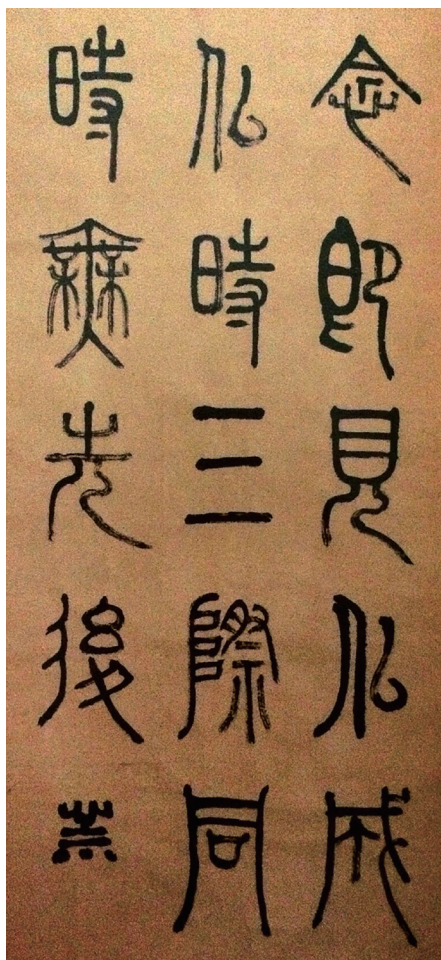 念即見仏成
仏時三際同
時無先後